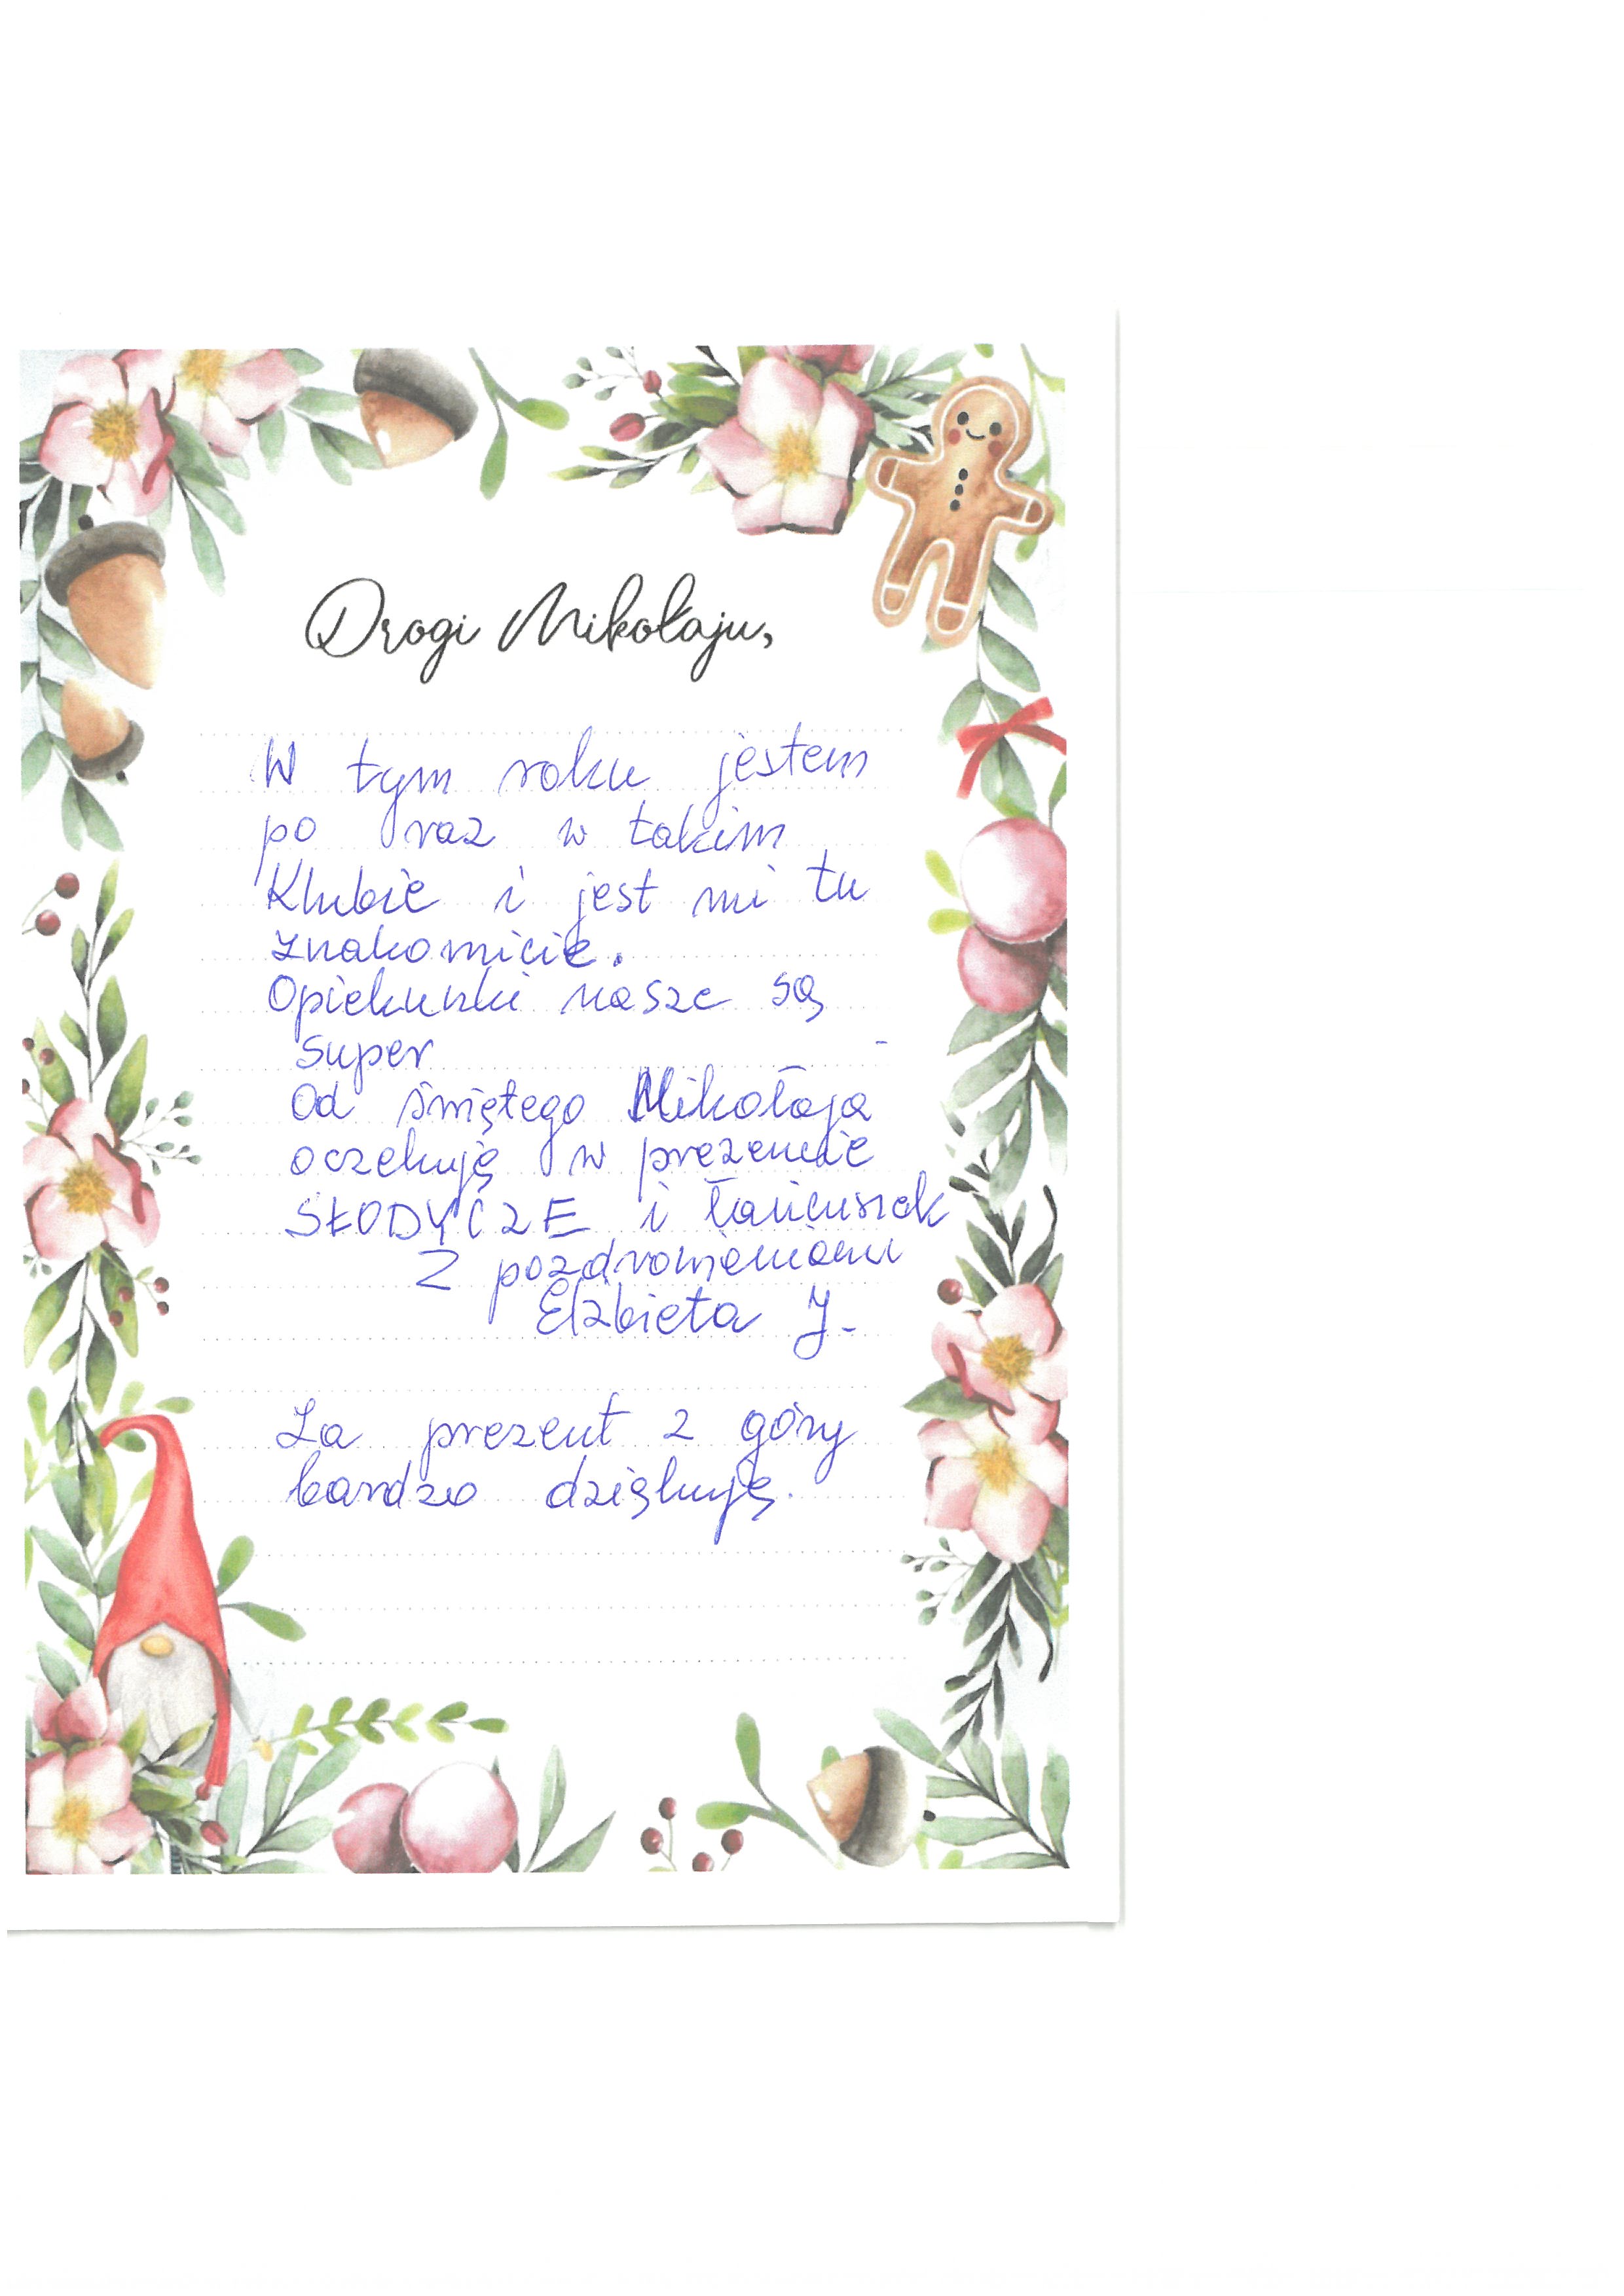 Drogi Mikołaju,
W tym roku jestem
po raz w takim
Klubie i jest mi tu
znakomicie.
Opiekunki nasze są
super
Od świętego Mikołaja
oczekuję w prezencie
SŁODYCZE i łańcuszek
Z pozdrowieniami
Elżbieta J.
Za prezent z góry
bardzo dziękuję.